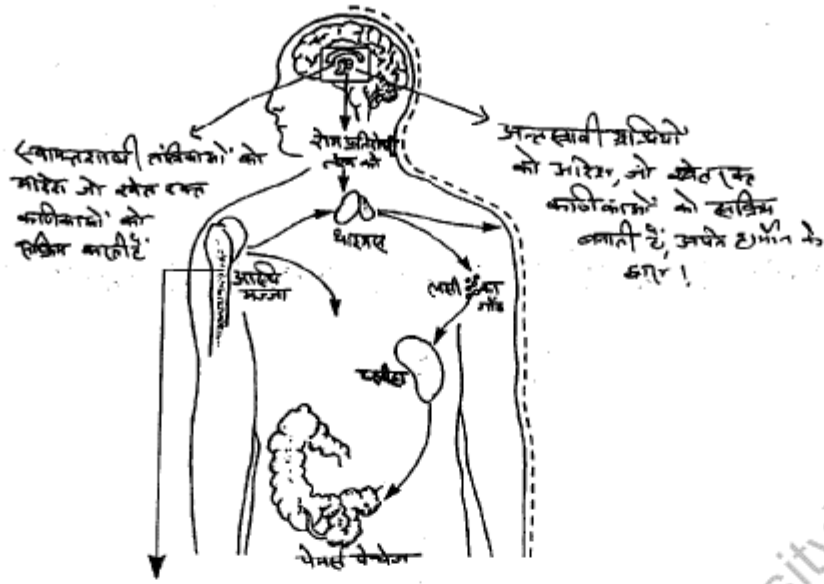 स्वायत्तशासी तंत्रिकाओं को
आदेश जो श्वेत रक्त
कणिकाओं को
सक्रिय करती हैं
रोग प्रतिरोधी
तंत्र को
अन्तःस्रावी ग्रन्थियों
को आदेश, जो श्वेत रक्त
कणिकाओं को सक्रिय
बनाती हैं, अपने हार्मोन के
द्वारा।
थाइमस
अस्थि
मज्जा
लसीका
गाँठ
प्लीहा
पेयर्स पेचेज